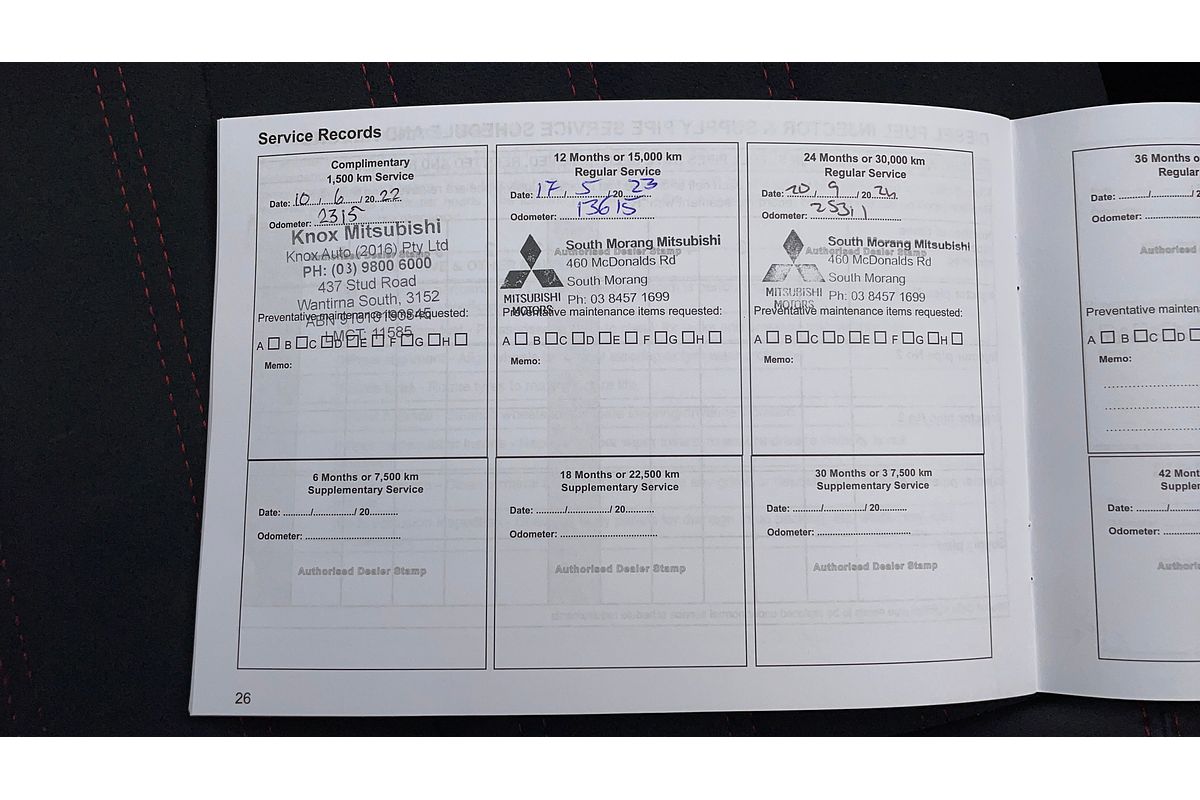 Service Records
Complimentary
1,500 km Service
Date: 10 / 6 / 20 22
Odometer: 2315
Knox Mitsubishi
Knox Auto (2016) Pty Ltd
Authorised Dealer Stamp
PH: (03) 9800 6000
437 Stud Road
Wantirna South, 3152
Preventative maintenance items requested:
LMCT: 11585
A B C D E F G H
Memo:
12 Months or 15,000 km
Regular Service
Date: 17 / 5 / 20 23
Odometer: 13615
South Morang Mitsubishi
Authorised Dealer Stamp
460 McDonalds Rd
South Morang
MITSUBISHI
MOTORS
Ph: 03 8457 1699
Preventative maintenance items requested:
A B C D E F G H
Memo:
24 Months or 30,000 km
Regular Service
Date: 20 / 9 / 20 24
Odometer: 25311
South Morang Mitsubishi
Authorised Dealer Stamp
460 McDonalds Rd
South Morang
MITSUBISHI
MOTORS
Ph: 03 8457 1699
Preventative maintenance items requested:
A B C D E F G H
Memo:
6 Months or 7,500 km
Supplementary Service
Date: ........../.............../ 20..........
Odometer: ..................................
Authorised Dealer Stamp
18 Months or 22,500 km
Supplementary Service
Date: ........../.............../ 20..........
Odometer: ..................................
Authorised Dealer Stamp
30 Months or 3 7,500 km
Supplementary Service
Date: ........../.............../ 20..........
Odometer: ..................................
Authorised Dealer Stamp
26
36 Months o
Regular
Date: ........../...............
Odometer: ....................
Authorised
Preventative mainten
A B C D
Memo:
42 Mont
Supplem
Date: ........../........
Odometer: ................
Authori